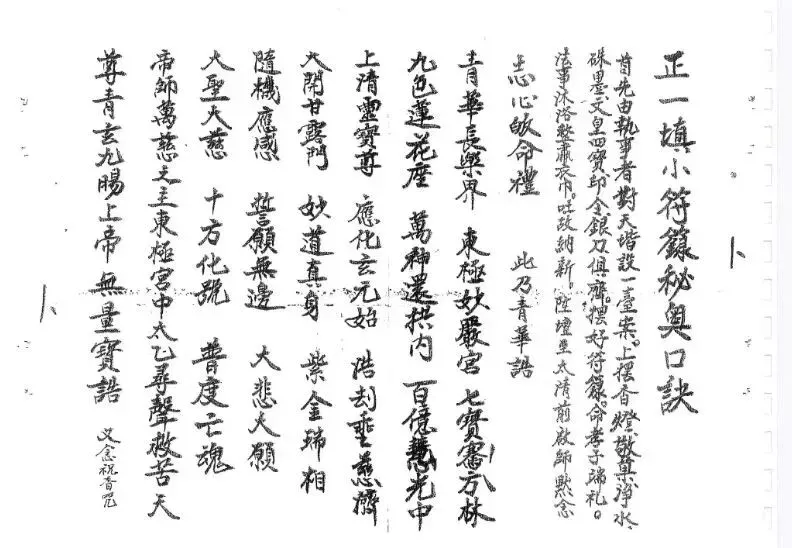 正一填小符籙秘奥口訣
首先由執事者對天堦設一臺案。上摆香燈、散菓、淨水、
硃墨、文皇四寶、印令、銀刀俱齊。摆好符籙。命孝子瑞礼。
法事沐浴整肅衣巾。吐故納新。陞壇至太清前啟師默念
志心皈命禮 此乃青華誥
青華長樂界 東極妙嚴宮 七寶騫方林
九色蓮花座 萬神還拱内 百億慧光中
上清靈寶尊 應化玄元始 浩刦垂慈濟
大開甘露門 妙道真身 紫金瑞相
隨機應感 誓願無邊 大悲大願
大聖大慈 十方化號 普度亡魂
帝師萬慈之主東極宮中太乙尋聲救苦天
尊青玄九陽上帝無量寶誥 又念祝香咒